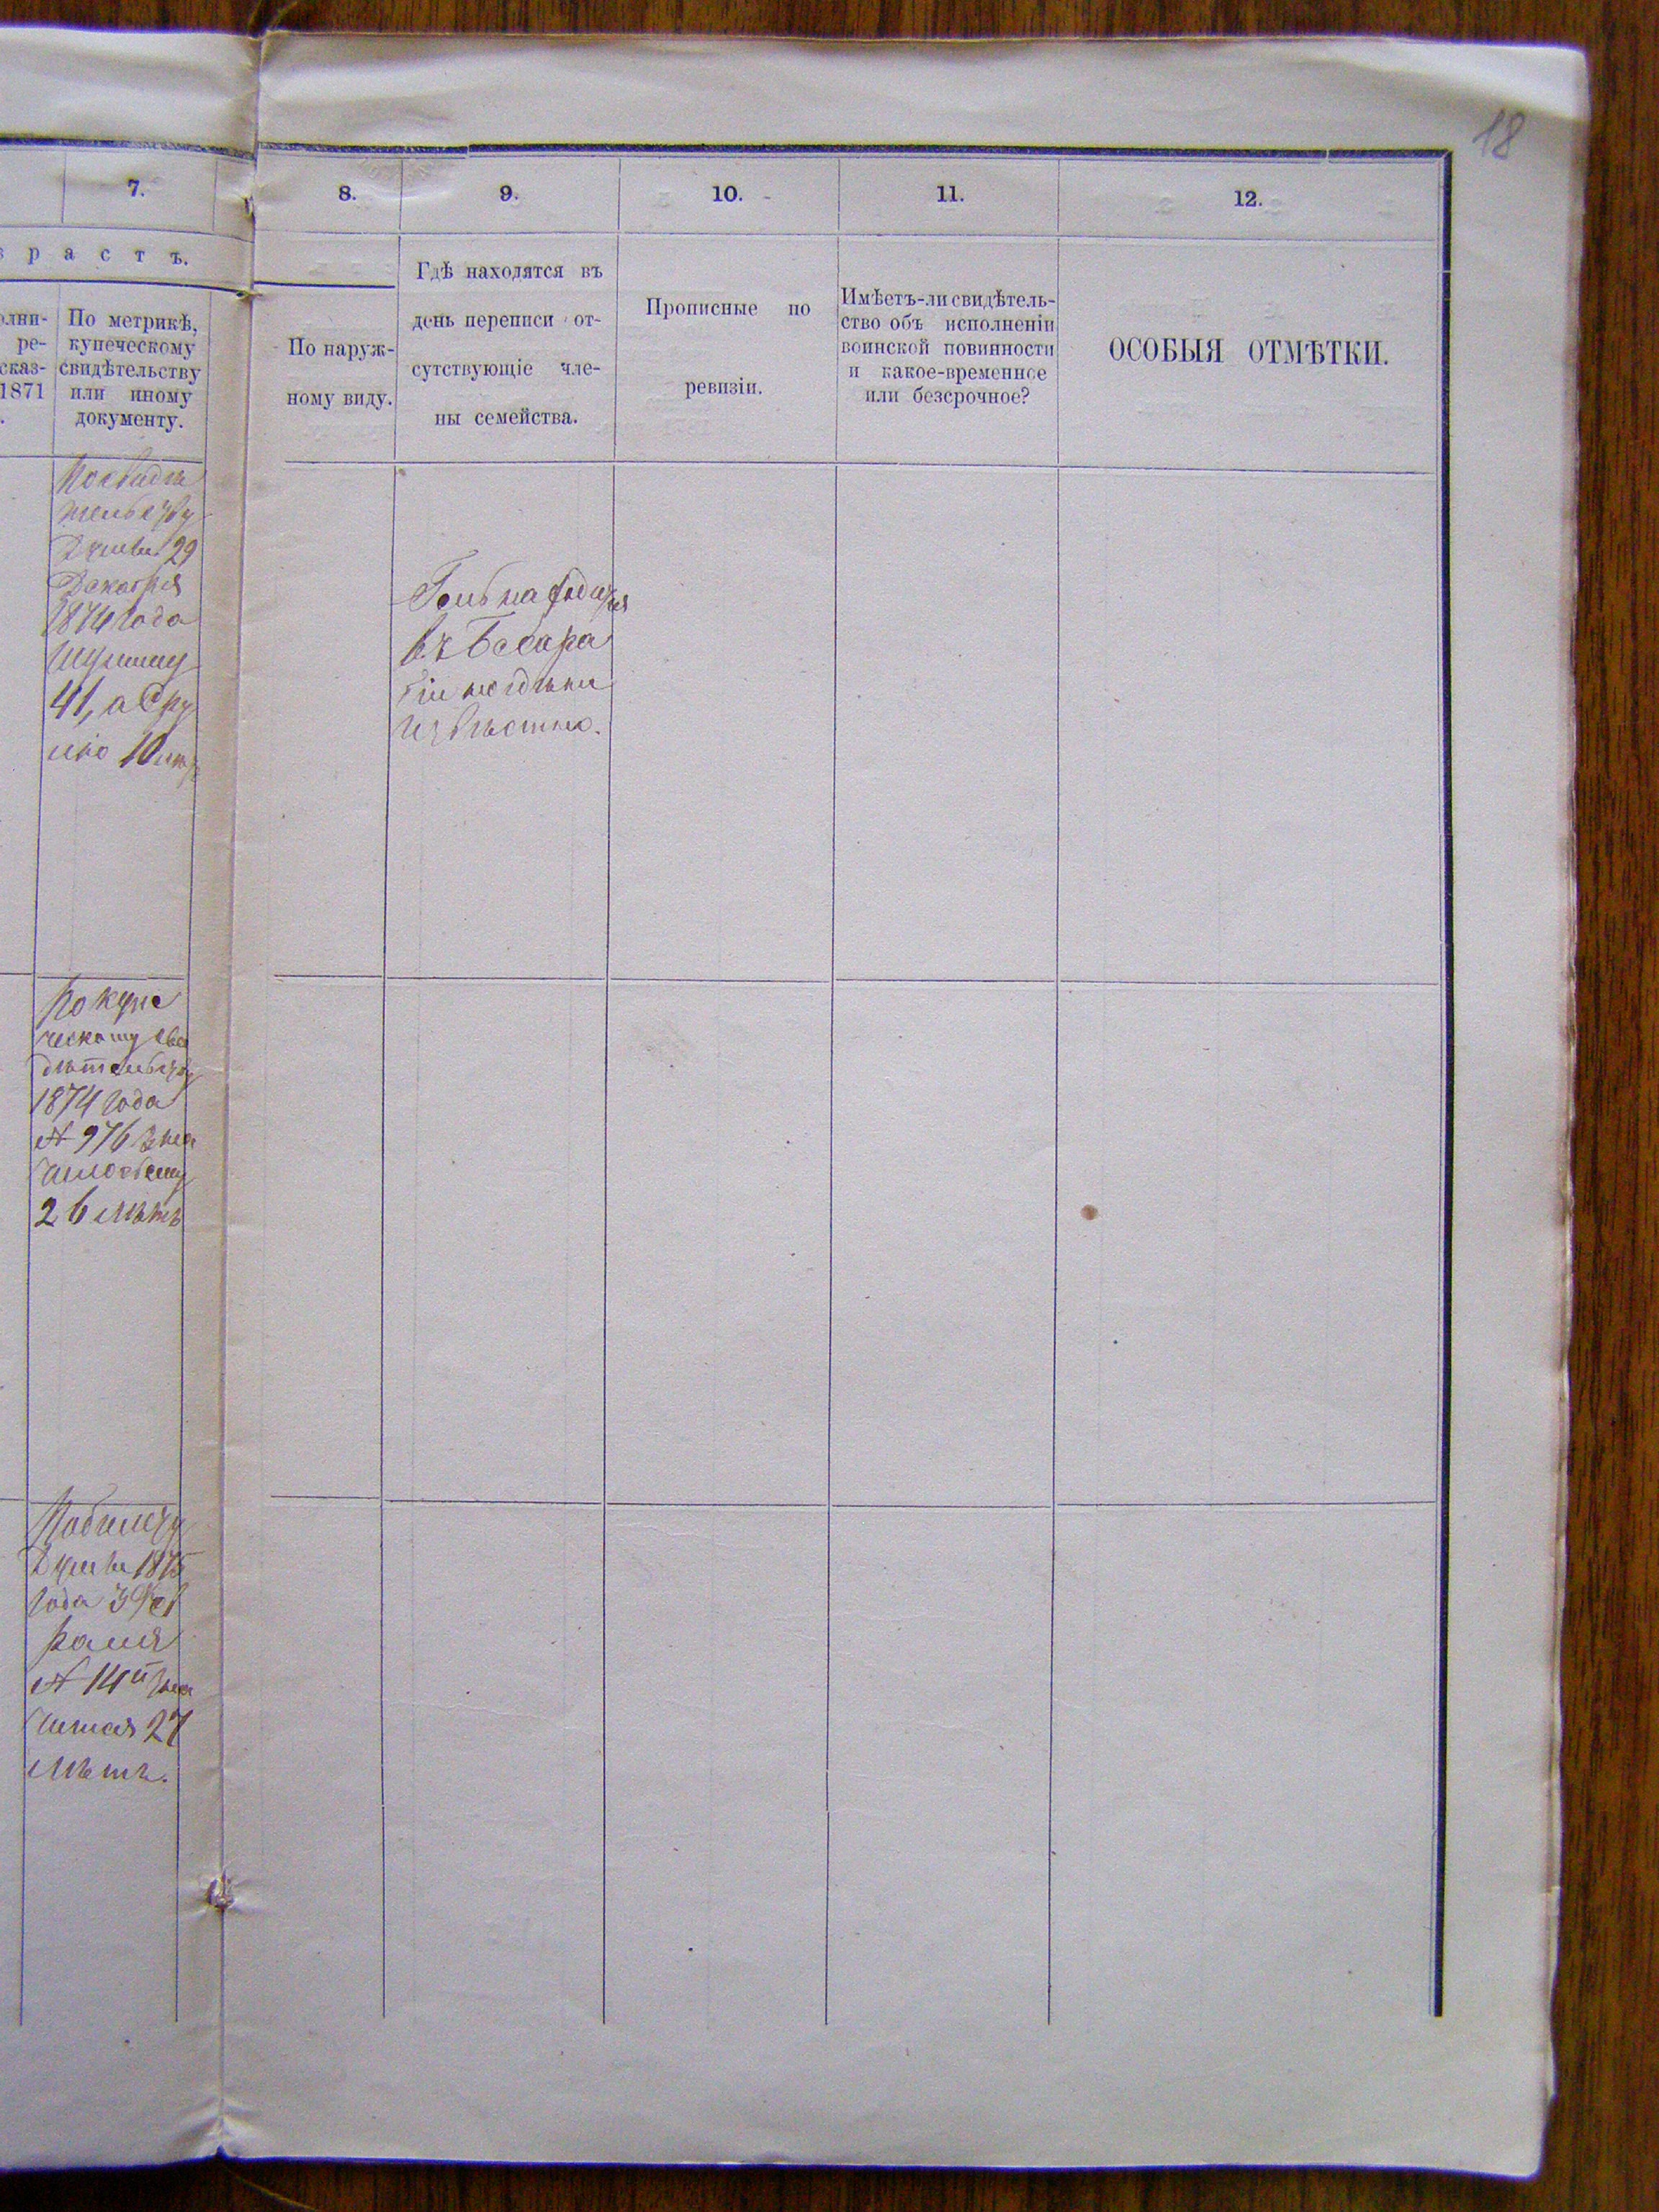 18
7.
8.
9.
10.
11.
12.
р а с т ъ.
олни-
ре-
сказ-
1871
По метрикѣ,
купеческому
свидѣтельству
или иному
документу.
По наруж-
ному виду.
Гдѣ находятся въ
день переписи от-
сутствующіе чле-
ны семейства.
Прописные по
ревизіи.
Имѣетъ-ли свидѣтель-
ство объ исполненіи
воинской повинности
и какое-временное
или безсрочное?
ОСОБЫЯ ОТМѢТКИ.
По свидѣ
тельству
Думы 29
Декабря
1874 года
41, а
10
находится
въ Бесара
біи
извѣстно.
По купе
ческому сви
дѣтельству
1874 года
№ 976
26 лѣтъ
По билету
Думы 1875
года 3 Фев
раля
№ 14
27
лѣтъ.